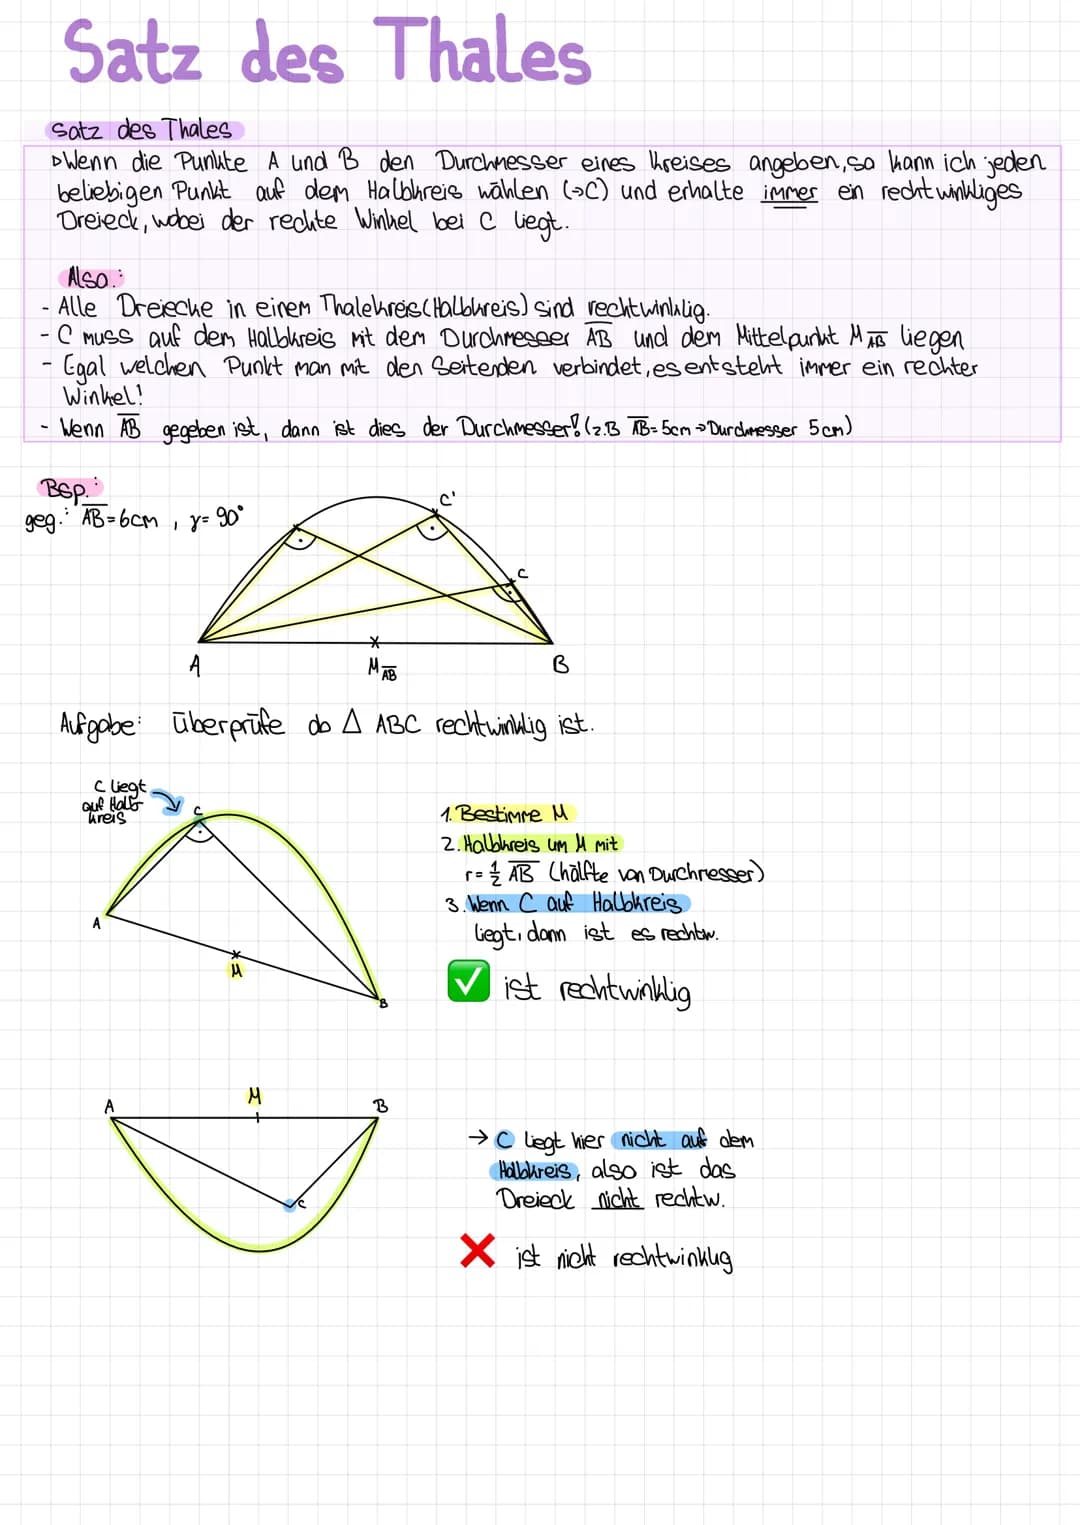 Satz des Thales
Satz des Thales
▷Wenn die Punkte A und B den Durchmesser eines Kreises angeben, so kann ich jeden
beliebigen Punkt auf dem Halbkreis wählen (→C) und erhalte immer ein rechtwinkliges
Dreieck, wobei der rechte Winkel bei C liegt.
Also:
- Alle Dreiecke in einem Thalekreis (Halbkreis) sind rechtwinklig.
- C muss auf dem Halbkreis mit dem Durchmesser A̅B̅ und dem Mittelpunkt M A̅B̅ liegen
- Egal welchen Punkt man mit den Seitenden verbindet, es entsteht immer ein rechter
Winkel!
- Wenn A̅B̅ gegeben ist, dann ist dies der Durchmesser! (z.B A̅B̅=5cm →Durchmesser 5cm)
Bsp.:
geg.: A̅B̅=6cm, γ=90°
C'
C
A
M A̅B̅
B
Aufgabe: überprüfe ob △ ABC rechtwinklig ist.
C liegt
auf Halb
kreis
C
A
M
B
1. Bestimme M
2. Halbkreis um M mit
r=½ A̅B̅ (hälfte von Durchmesser)
3. Wenn C auf Halbkreis
liegt, dann ist es rechtw.
✅ ist rechtwinklig
A
M
B
C
→ C liegt hier nicht auf dem
Halbkreis, also ist das
Dreieck nicht rechtw.
❌ ist nicht rechtwinklig